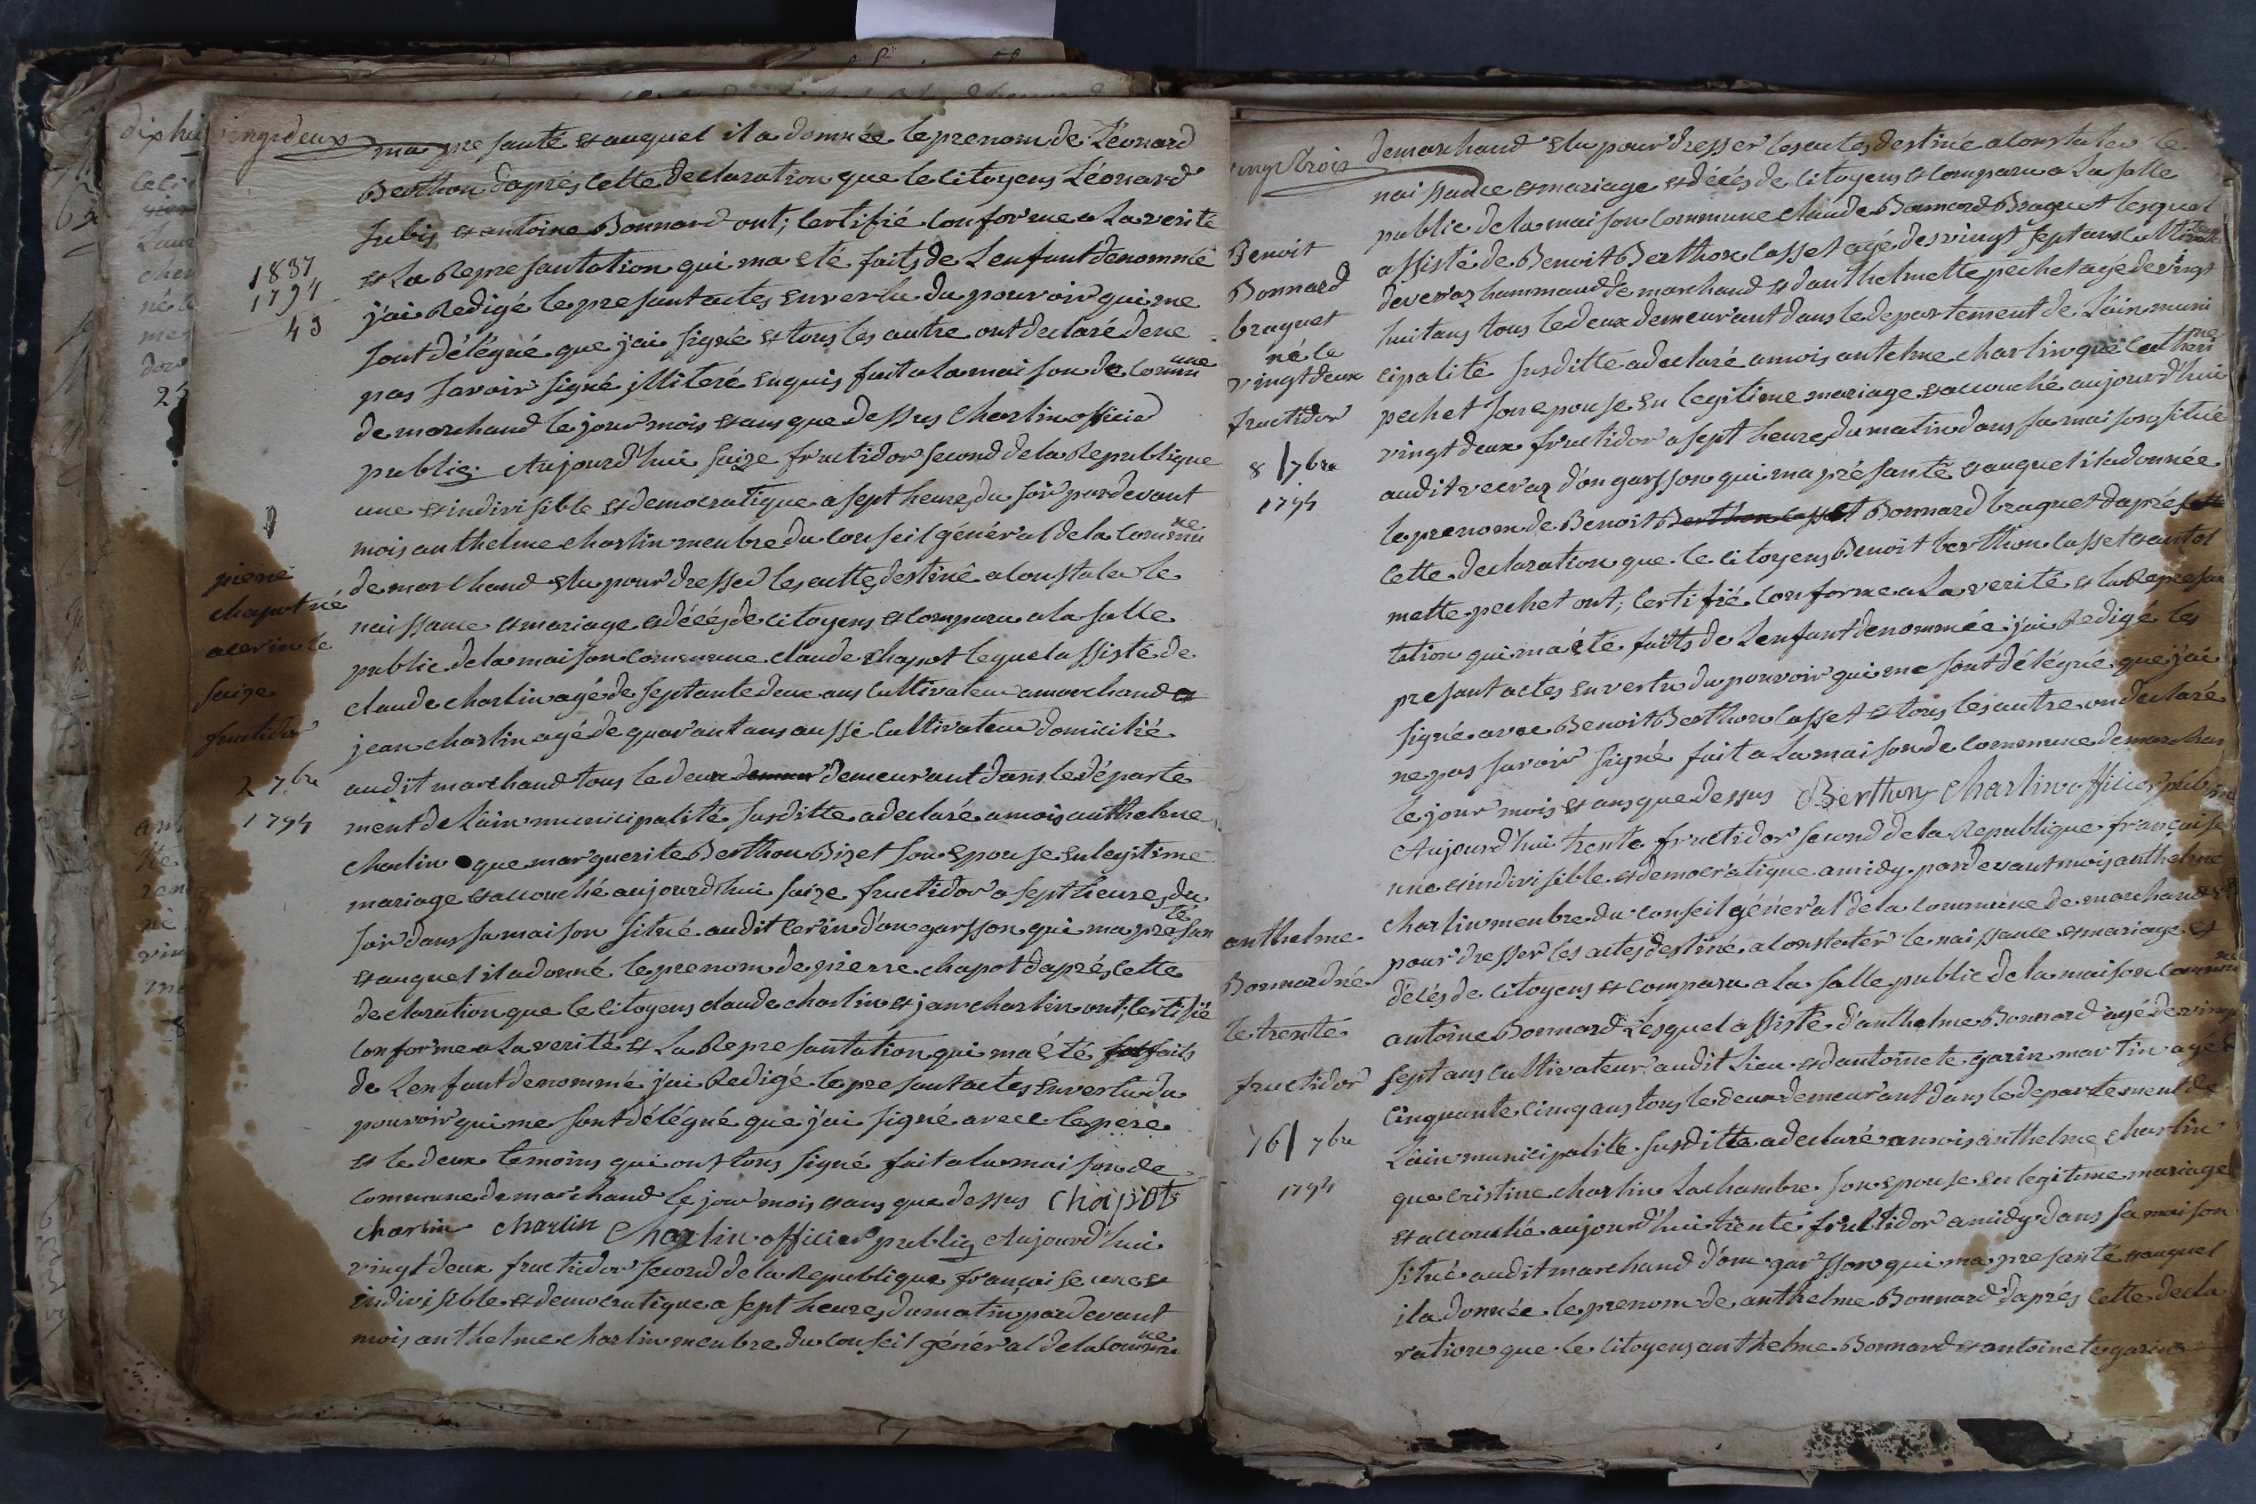 vingtdeux
ma pre santé et auquel il a donnée le prenom de Léonard
Berthon d'aprés cette declaration que le citoyens Léonard
Subis et antoine Bonnard ont; certifié conforme a la verité
et La Represantation qui ma eté faits de L'enfant denommée
j'ai Redigé le presant actes en vertu du pouvoir qui me
sont délégué que j'ai signé et tous les autre ont declaré de ne
pas savoir signé illiteré enquis fait a la maison de commune
de marchand le jour mois et ans que dessus Charlin officier
public. Aujourd'hui saize fructidor second de la Republique
une et indivisible et democratique a sept heures du soir pardevant
mois anthelme charlin menbre du conseil général de la commune
de marchand élu pour dresser les actte destiné a constater le
naissance et mariage et décés de citoyens et comparu a la salle
public de la maison commune claude chapot lequel assisté de
claude charlin agé de septante deux ans cultivateur a marchand et
jean charlin agé de quarant ans aussi cultivateur domicilié
audit marchand tous le deux demeur demeurant dans le départe
ment de L'ain municipalité susditte a declaré a mois anthelme
charlin que marguerite Berthon Bizet son epouse en legitime
mariage et accouché aujourd'hui saize fructidor a sept heures du
soir dans sa maison situé audit cerin d'on garsson qui ma presanté
et auquel il a donné le prenom de pierre chapot d'aprés cette
declaration que le citoyens claude charlin et jean charlin ont; certifié
conforme a La verité et La Represantation qui ma été fat faits
de L'enfant denommé j'ai Redigé le presant actes en vertu du
pouvoir qui me sont délégué que j'ai signé avec le pere
et le deux temoins qui ont tous signé fait a la maison de
commune de marchand le jour mois et ans que dessus Chapot
charlin charlin Charlin officier public Aujourd'hui
vingt deux fructidor second de la Republique française une et
indivisible et democratique a sept heures du matin pardevant
mois anthelme charlin menbre du conseil général de la commune
1837
1794
43
pierre
chapot né
a cerin le
saize
fructidor
2 7bre
1794
vingt trois
de marchand élu pour dresser les actes destiné a constater le
naissance et mariage et décés de citoyens et comparu a La salle
public de la maison commune claude Bonnard Braguet lesquel
assisté de Benoit Berthon Casset agé des vingt sept ans
de veraz hammaud de marchand et d'anthelmette pechet agé de vingt
huit ans tous le deux demeurant dans le departement de L'ain muni
cipalité susditte a declaré a mois antelme charlin que catherine
pechet son epouse en legitime mariage et accouché aujourd'hui
vingt deux fructidor a sept heures du matin dans sa maison situé
audit veraz d'on garsson qui ma présanté et auquel il a donnée
le prenom de Benoit Berthon casset Bonnard braguet d'aprés cette
cette declaration que le citoyens Benoit berthon casset et antel
mette pechet ont; certifié conforme a La verité et la Represan
tation qui ma été faitts de L'enfant denommée j'ai Redigé les
presant actes en vertu du pouvoir qui me sont délégué que j'ai
signé avec Benoit Berthon casset et tous les autre on declaré
ne pas savoir signé fait a La maison de commune de marchan
le jour mois et ans que dessus Berthon Charlin officier public
Aujourd'hui trente fructidor second de la Republique française
une et indivisible et democratique a midy pardevant mois anthelme
charlin menbre du conseil général de la commune de marchand
pour dresser les actes destiné a constater le naissance et mariage et
décés de citoyens et comparu a la salle public de la maison commune
antoine Bonnard Lesquel assisté d'anthelme Bonnard agé de vingt
sept ans cultivateur audit Lieu et d'antoinete garin martin agé
cinquante cinq ans tous le deux demeurant dans le departement de
L'ain municipalité susditte a declaré a mois anthelme charlin
que cristine charlin Lachambre son epouse en legitime mariage
et accouché aujourd'hui trente fructidor a midy dans sa maison
situé audit marchand d'on garsson qui ma presanté et auquel
il a donnée le prenom de anthelme Bonnard d'aprés cette decla
ration que le citoyens anthelme Bonnard et antoinete garin
Benoit
Bonnard
braguet
né le
vingt deux
fructidor
8 7bre
1794
anthelme
Bonnard né
le trente
fructidor
16 7bre
1794